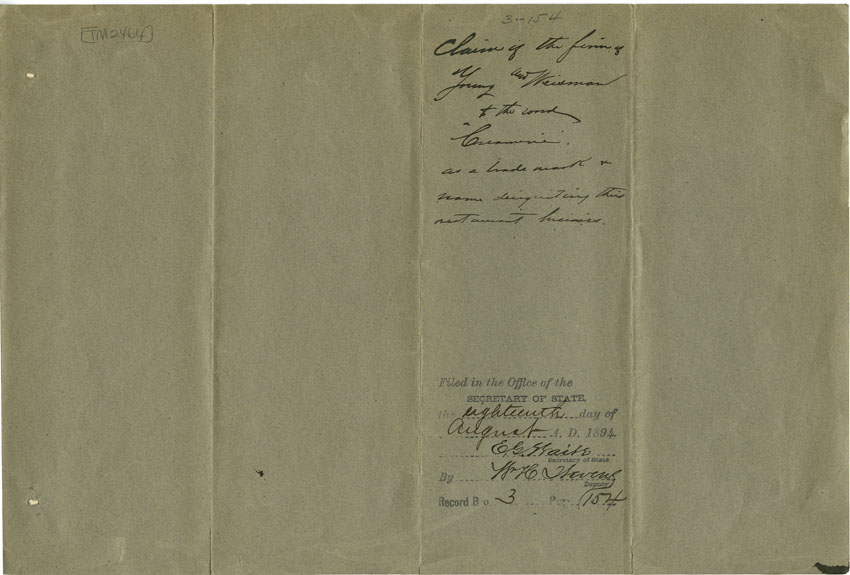 [TM2464]
3-154
Claim of the firm of
Young and Weidman
to the word
"Creamerie".
as a trade mark &
name designating their
restaurant business.
Filed in the Office of the
SECRETARY OF STATE,
the eighteenth day of
August A. D. 1894.
E. G. Waite
Secretary of State.
By W. H. Stevens
Deputy
Record B o 3 P 154